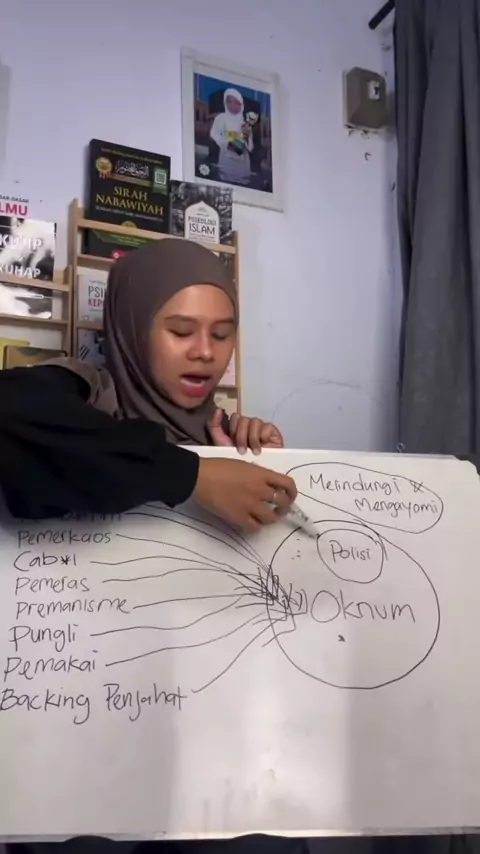 SIRAH
NABAWIYAH
PSIKOLOGI
ISLAM
ILMU
KUHP
KUHAP
PSI
Melindungi &
Mengayomi
Polisi
Oknum
Pemerkaos
Cab*l
Pemeras
Premanisme
Pungli
Pemakai
Backing Penjahat